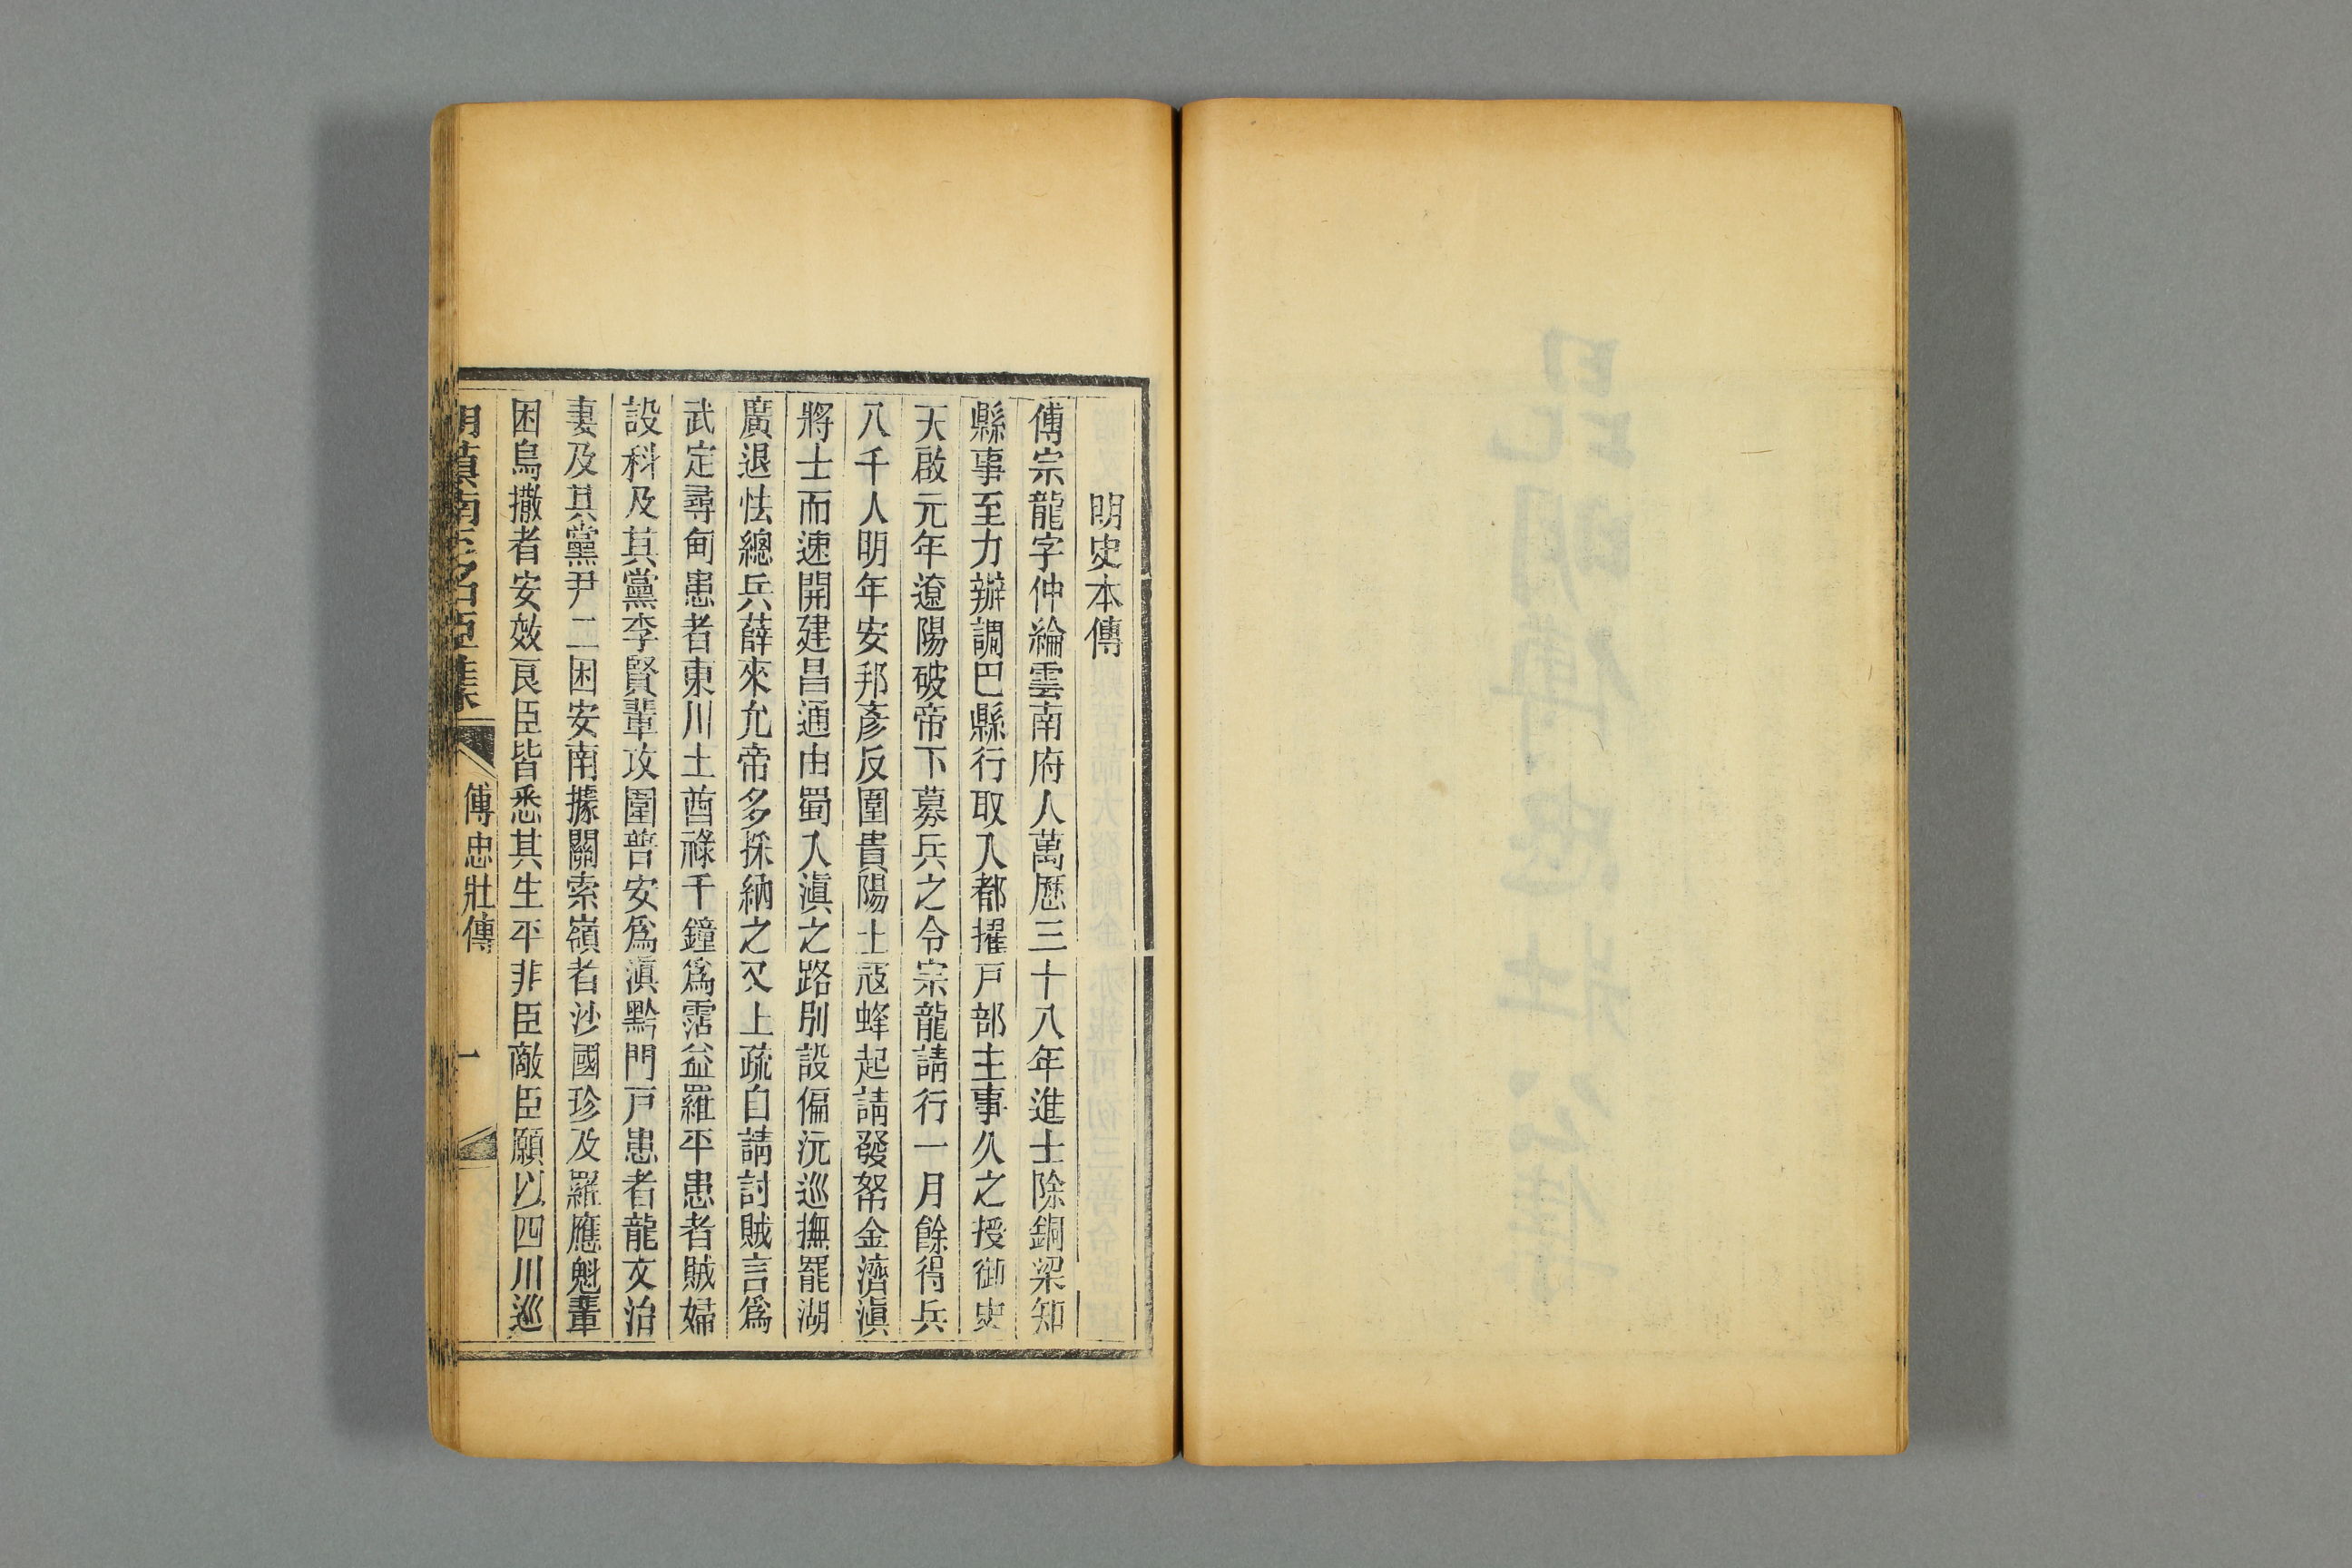 明史本傳
傅宗龍字仲綸雲南府人萬歷三十八年進士除銅梁知
縣事至力辦調巴縣行取入都擢戸部主事久之授御史
天啟元年遼陽破帝下募兵之令宗龍請行一月餘得兵
八千人明年安邦彥反圍貴陽土寇蜂起請發帑金濟滇
將士而速開建昌通由蜀入滇之路別設偏沅巡撫罷湖
廣退怯總兵薛來允帝多採納之又上疏自請討賊言為
武定尋甸患者東川土酋祿千鐘為霑益羅平患者賊婦
設科及其黨李賢輩攻圍普安為滇黔門戸患者龍文治
妻及其黨尹二困安南據關索嶺者沙國珍及羅應魁輩
困烏撒者安效良臣皆悉其生平非臣敵臣願以四川巡
明滇南五名臣集
傅忠壯傳
一